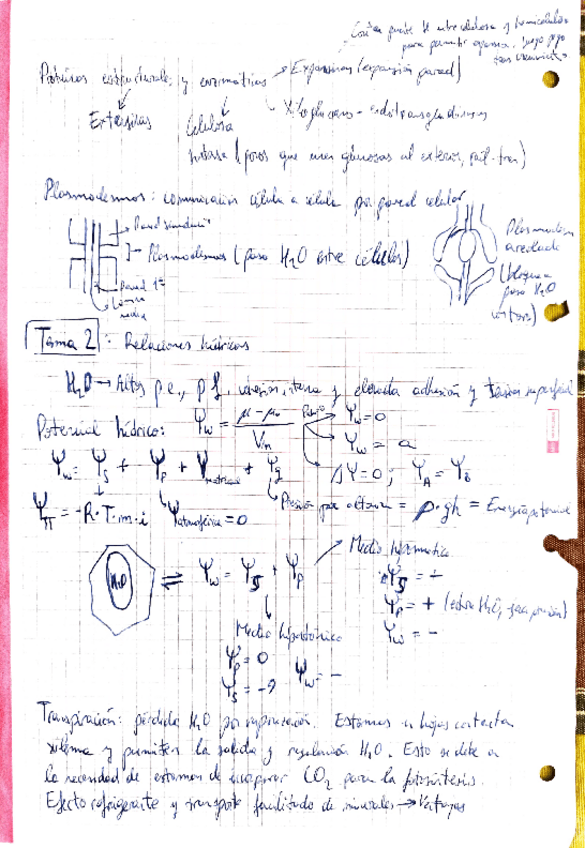 Cortan puente H entre celulosa y hemicelulosa
para permitir
Proteínas estructurales y enzimáticas → Expansinas (expansión pared)
Extensinas
Xiloglucano - endotransglucosilasas
Celulosa
sintasa (poros que unen glucosas al exterior,
Plasmodesmos: comunicación célula a célula por pared celular
Pared secundaria
Plasmodesmos (paso H₂O entre células)
Pared 1ª
Lámina
media
Plasmodesmo
areolado
(bloquea
paso H₂O
Tema 2: Relaciones hídricas
H₂O → Altos p.e., p.f., cohesión interna y elevada adhesión y tensión superficial
Potencial hídrico: Ψw = μ - μo / Vm
Ψw = 0
Ψw = a
ΔΨ = 0; ΨA = ΨB
Ψw = Ψs + Ψp + Ψmatricial + Ψg
Presión por altura = ρ·gh = Energía potencial
Ψπ = -R·T·m·i
Ψatmosférica = 0
H₂O ⇌ Ψw = Ψs + Ψp
Medio
Ψs = +
Ψp = +
Ψw = -
Medio hipertónico
Ψp = 0
Ψw = -
Transpiración: pérdida H₂O por evaporación. Estomas en hojas conectan
sistema y permiten la salida y regulación H₂O. Esto se debe a
la necesidad de estomas de incorporar CO₂ para la fotosíntesis.
Efecto refrigerante y transporte facilitado de minerales → Ventajas